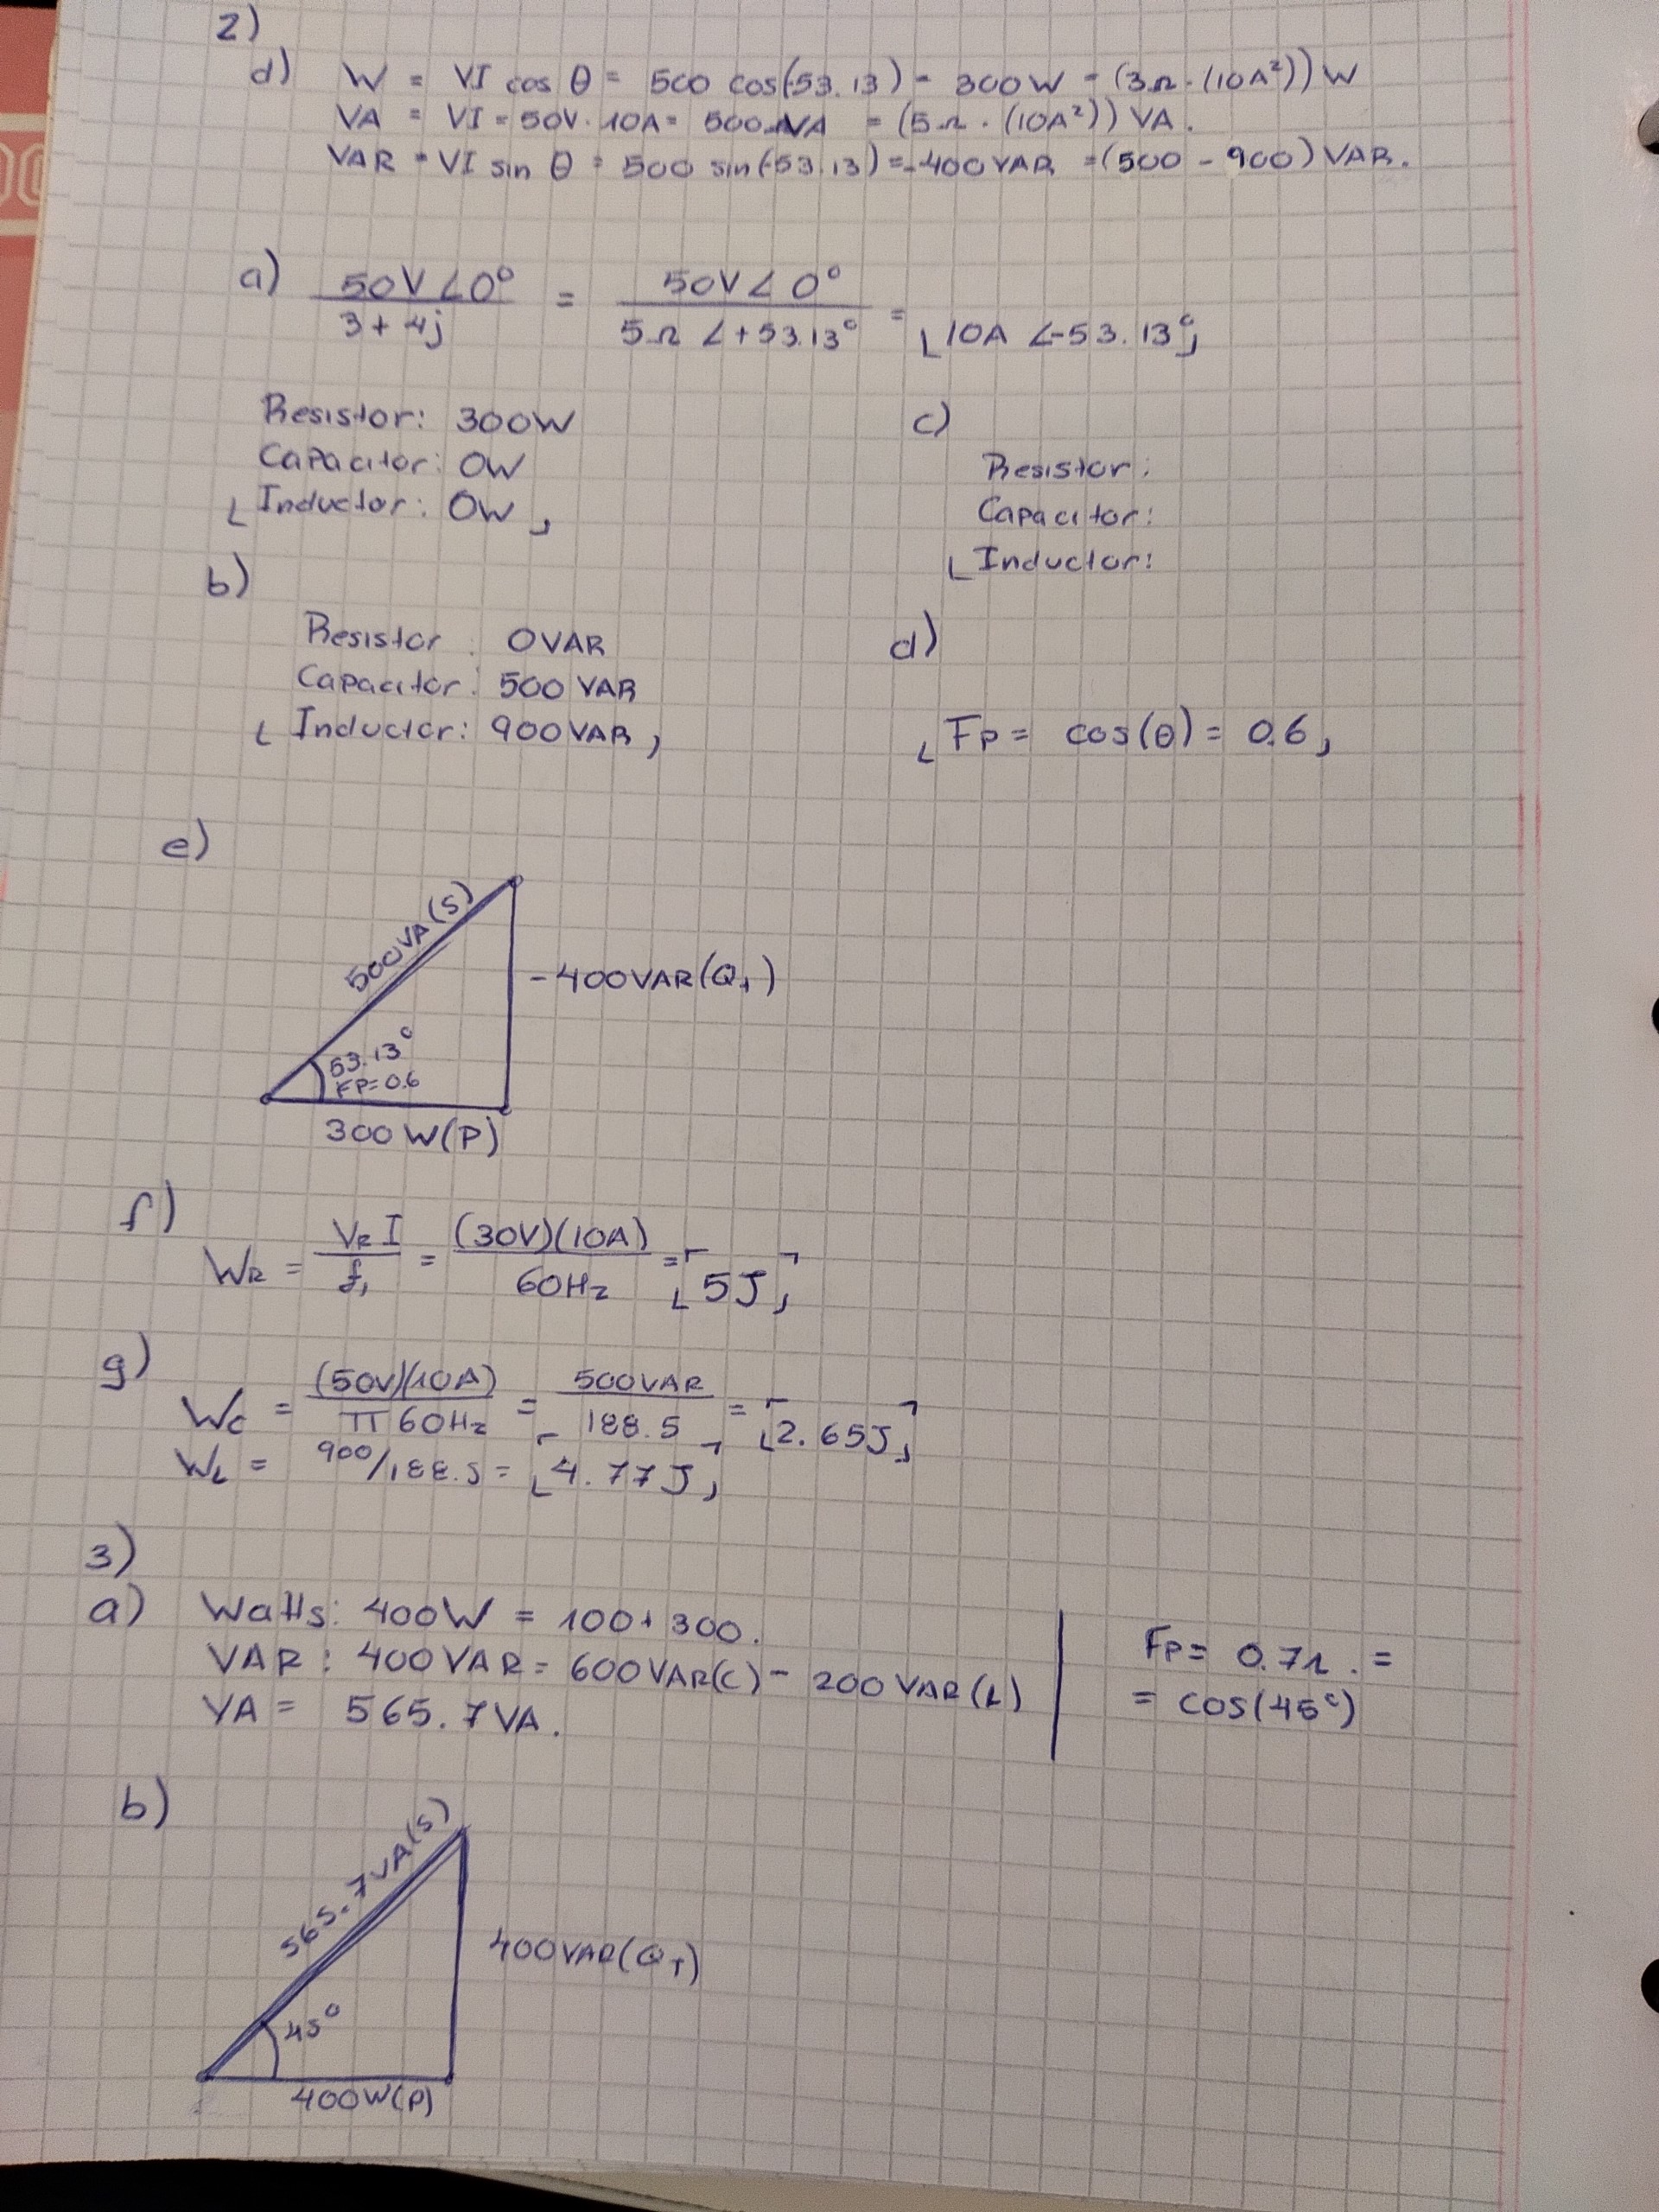 2)
d) W = VI cos θ = 500 cos(-53.13) = 300W = (3Ω·(10A²))W
VA = VI = 50V·10A = 500 VA = (5Ω·(10A²)) VA.
VAR = VI sin θ = 500 sin(-53.13) = -400VAR = (500 - 900) VAR.
a) 50V∠0° / 3+4j = 50V∠0° / 5Ω ∠+53.13° = 10A ∠-53.13°
Resistor: 300W
Capacitor: 0W
Inductor: 0W
c)
Resistor:
Capacitor:
Inductor:
b)
Resistor: 0VAR
Capacitor: 500 VAR
Inductor: 900VAR
d)
Fp = cos(θ) = 0.6
e)
500VA(S)
-400VAR(QT)
53.13°
FP=0.6
300W(P)
f)
WR = VR I / f1 = (30V)(10A) / 60Hz = 5J
g)
Wc = (50V)(10A) / π 60Hz = 500VAR / 188.5 = 2.65J
WL = 900/188.5 = 4.77J
3)
a) Watts: 400W = 100+300.
VAR: 400VAR = 600VAR(C) - 200VAR(L)
VA = 565.7VA.
Fp = 0.71. =
= cos(45°)
b)
565.7VA(S)
400VAR(QT)
45°
400W(P)